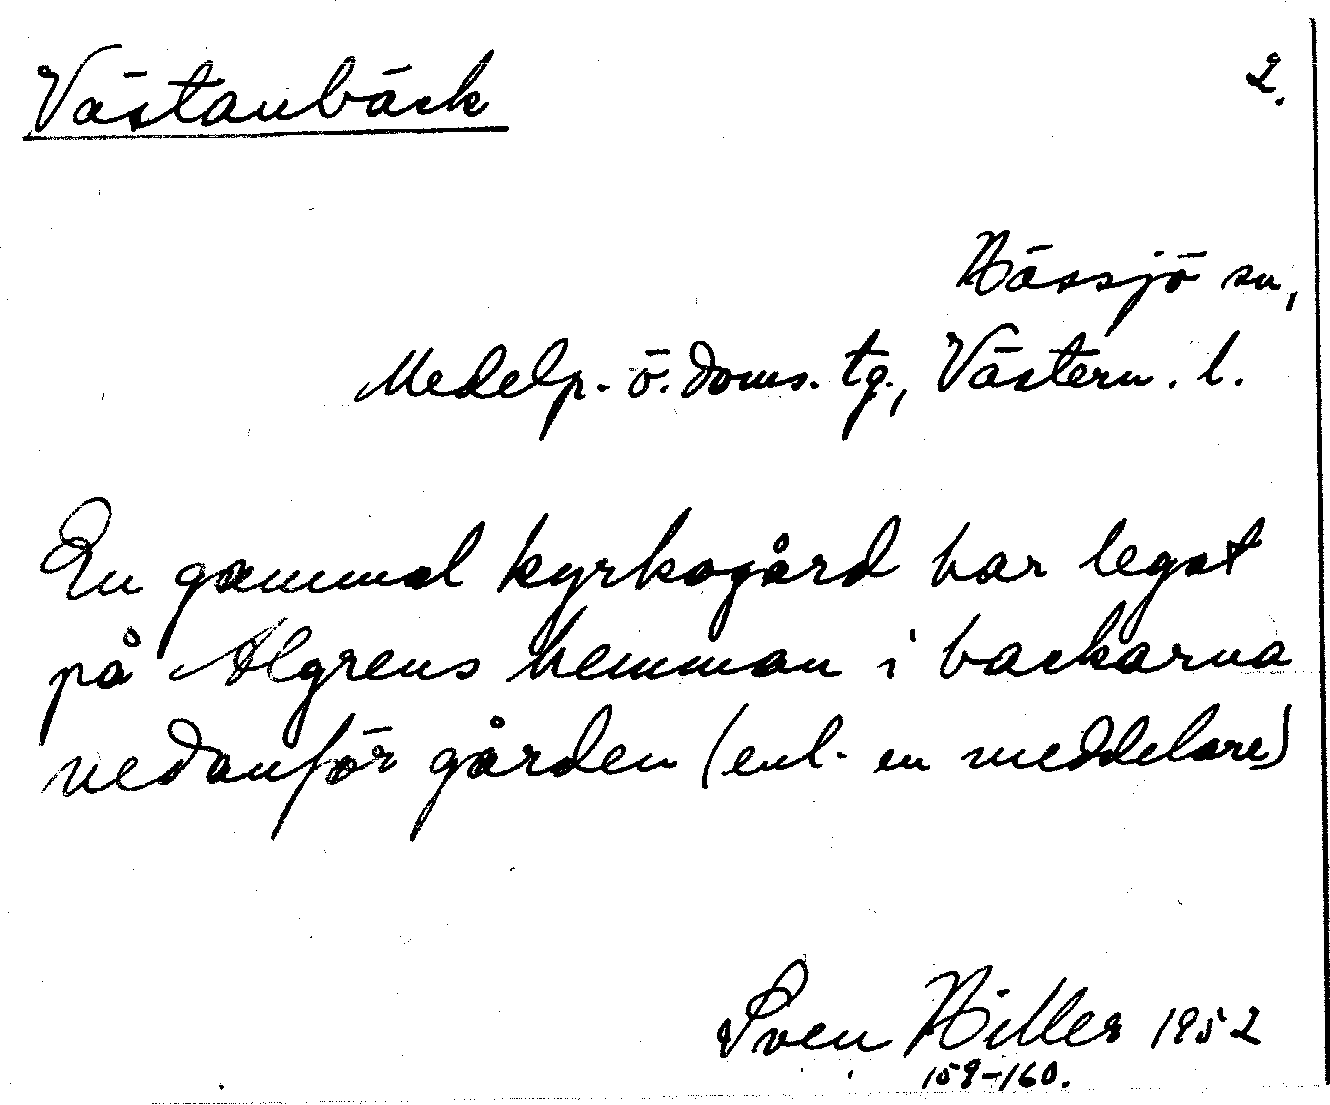 Västanbäck
2.
Hässjö sn,
Medelp. ö. doms. tg., Västern. l.
En gammal kyrkogård har legat
på Algrens hemman i backarna
nedanför gården (enl. en meddelare)
Sven Hilles 1952
159-160.